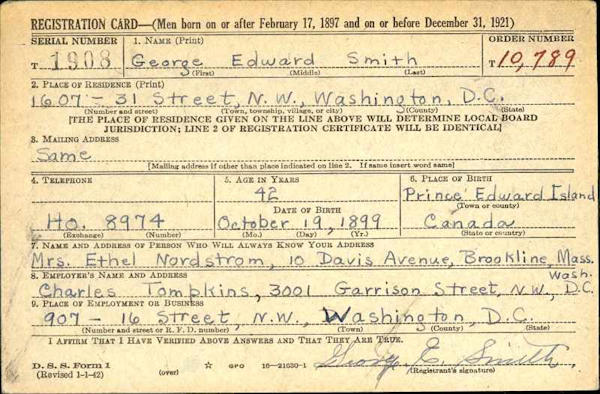 REGISTRATION CARD—(Men born on or after February 17, 1897 and on or before December 31, 1921)
SERIAL NUMBER 1. NAME (Print) ORDER NUMBER
T 1908 George Edward Smith T 10,789
(First) (Middle) (Last)
2. PLACE OF RESIDENCE (Print)
1607 - 31 Street, N.W., Washington, D.C.
(Number and street) (Town, township, village, or city) (County) (State)
[THE PLACE OF RESIDENCE GIVEN ON THE LINE ABOVE WILL DETERMINE LOCAL BOARD
JURISDICTION; LINE 2 OF REGISTRATION CERTIFICATE WILL BE IDENTICAL]
3. MAILING ADDRESS
Same
[Mailing address if other than place indicated on line 2. If same insert word same]
4. TELEPHONE 5. AGE IN YEARS 6. PLACE OF BIRTH
42 Prince Edward Island
DATE OF BIRTH (Town or county)
HO. 8974 October 19, 1899 Canada
(Exchange) (Number) (Mo.) (Day) (Yr.) (State or country)
7. NAME AND ADDRESS OF PERSON WHO WILL ALWAYS KNOW YOUR ADDRESS
Mrs. Ethel Nordstrom, 10 Davis Avenue, Brookline, Mass.
8. EMPLOYER'S NAME AND ADDRESS Wash.
Charles Tompkins, 3001 Garrison Street, N.W., D.C.
9. PLACE OF EMPLOYMENT OR BUSINESS
907 - 16 Street, N.W., Washington, D.C.
(Number and street or R. F. D. number) (Town) (County) (State)
I AFFIRM THAT I HAVE VERIFIED ABOVE ANSWERS AND THAT THEY ARE TRUE.
George E. Smith
D. S. S. Form 1 (Registrant's signature)
(Revised 1-1-42) (over) ☆ GPO 16—21630-1